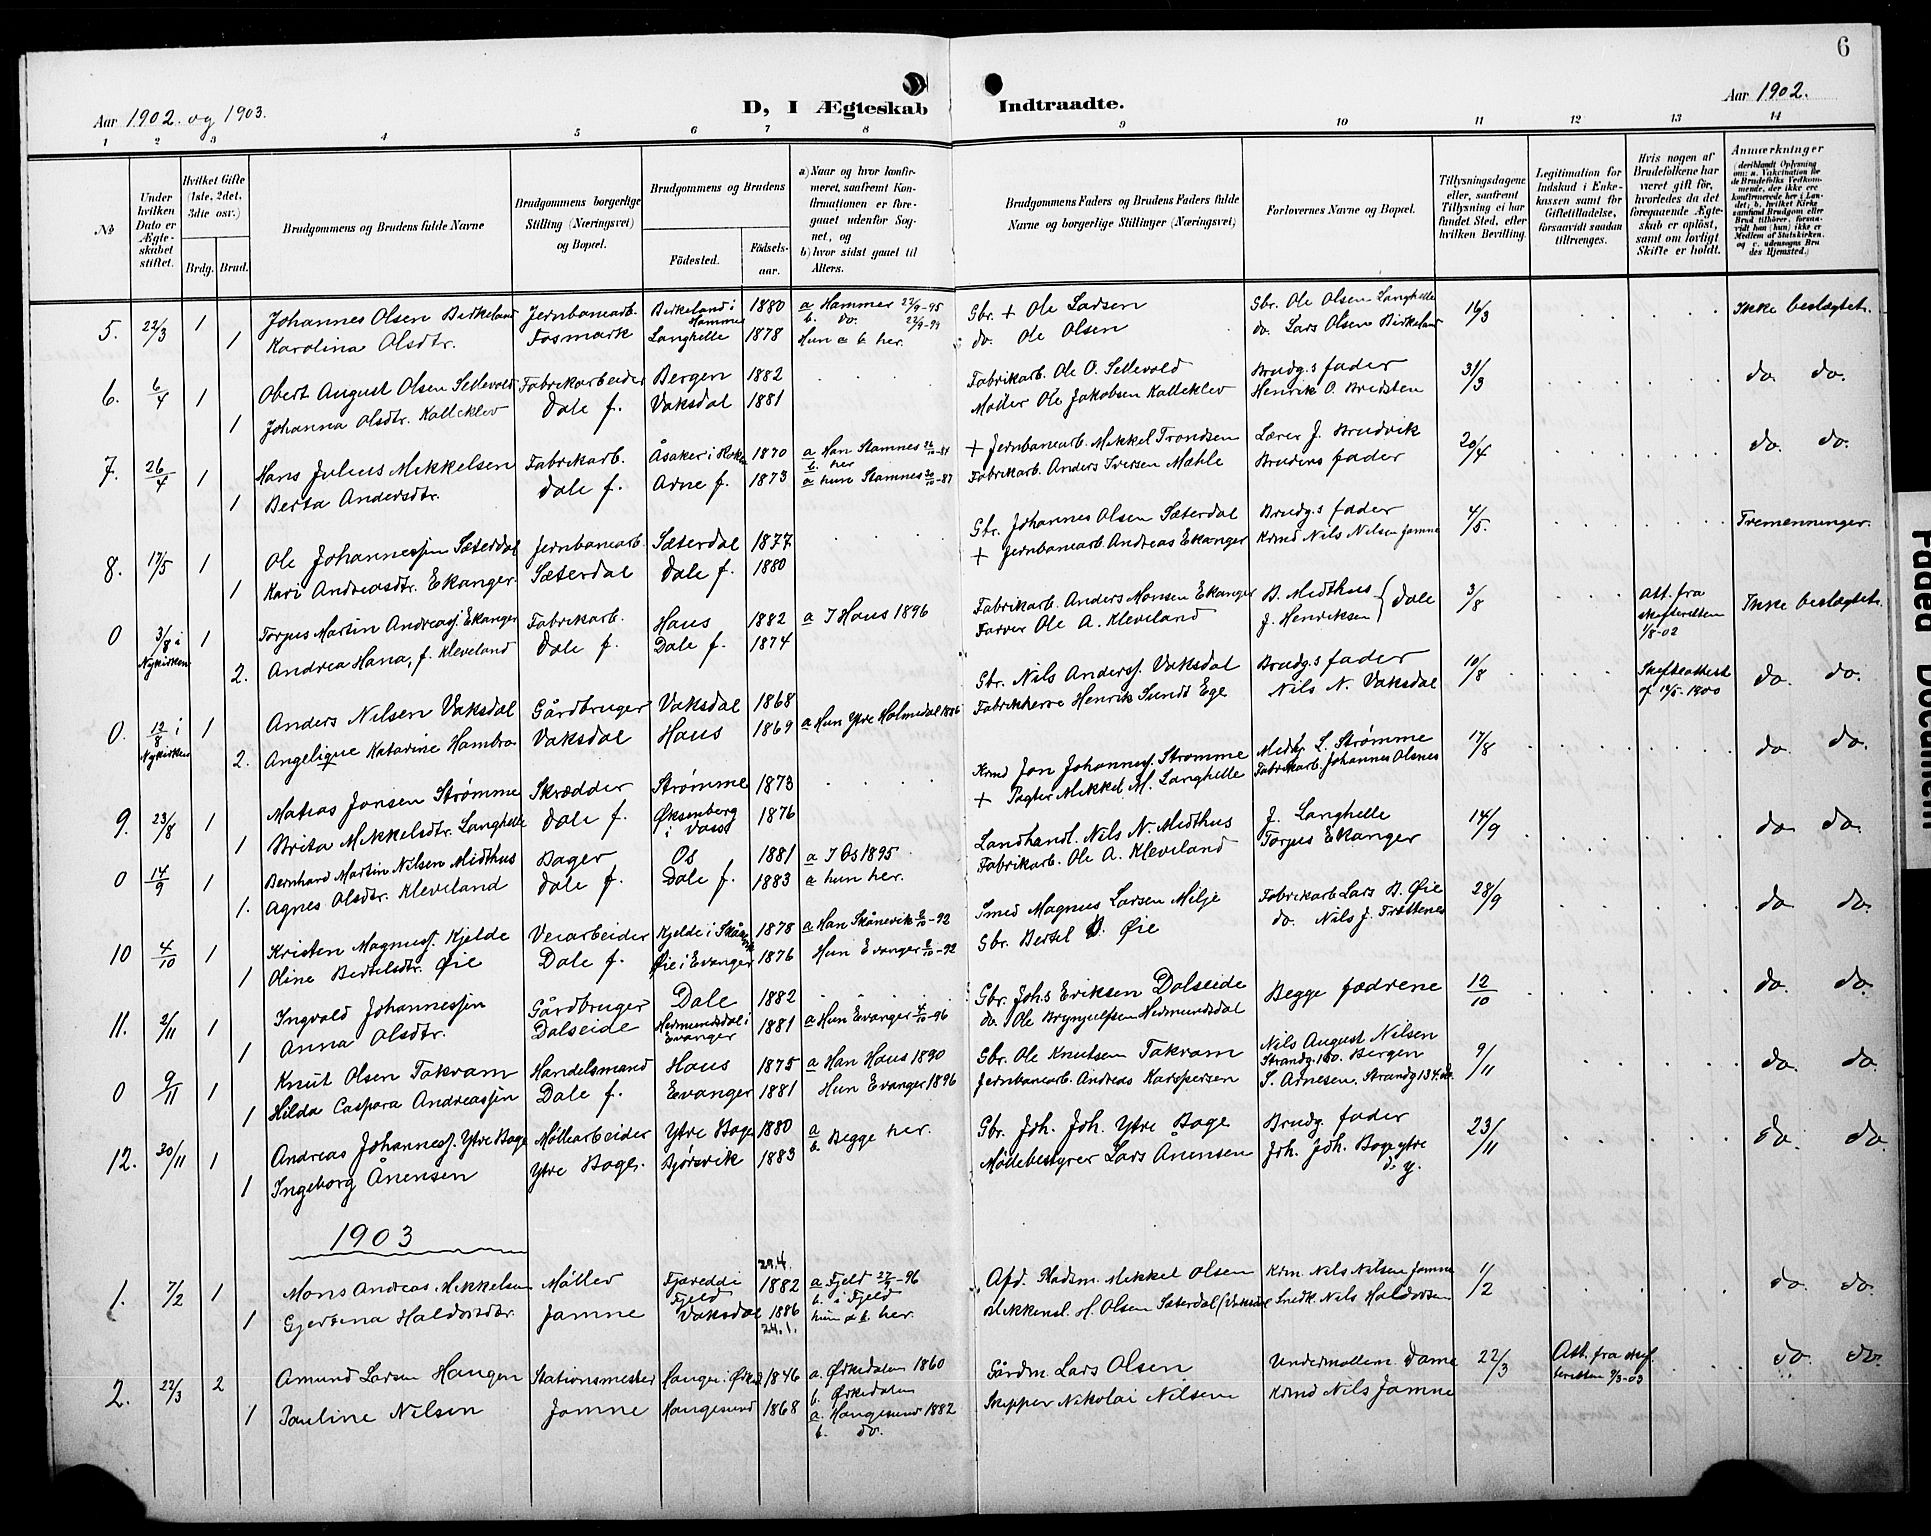 6
Aar 1902. og 1903.
D, I Ægteskab
Indtraadte.
Aar 1902.
1 2 3 4 5 6 7 8 9 10 11 12 13 14
No
Under hvilken Dato er Ægteskabet stiftet.
Hvilket Gifte (1ste, 2det, 3die osv.)
Brdg. Brud.
Brudgommens og Brudens fulde Navne
Brudgommens borgerlige Stilling (Næringsvei) og Bopæl.
Brudgommens og Brudens
Födested.
Födselsaar.
a) Naar og hvor konfirmeret, saafremt Konfirmationen er foregaaet udenfor Sognet, og
b) hvor sidst gaaet til Alters.
Brudgommens Faders og Brudens Faders fulde Navne og borgerlige Stillinger (Næringsvei)
Forlovernes Navne og Bopæl.
Tillysningsdagene eller, saafremt Tillysning ei har fundet Sted, efter hvilken Bevilling.
Legitimation for Indskud i Enkekassen samt for Giftetilladelse, forsaavidt saadan tiltrænges.
Hvis nogen af Brudefolkene har været gift för, hvorledes da det foregaaende Ægteskab er oplöst, samt om lovligt Skifte er holdt.
Anmærkninger
5. 22/3 1 Johannes Olsen Birkeland Jernbanearb. Birkeland i Hammer 1880 a Hammer 22/9-95 Gbr. + Ole Larsen Gbr. Ole Olsen Langhelle 16/3 Ikke beslægtet.
1 Karolina Olsdtr. Fosmark Langhelle 1878 Hun a b her. do. Ole Olsen do. Lars Olsen Birkeland
6. 6/4 1 Obert August Olsen Settevold Fabrikarbeider Bergen 1882 Fabrikarb. Ole O. Settevold Brudg.s fader 31/3 do. do.
1 Johanna Olsdtr. Kalleklev Dale f. Vaksdal 1881 Møller Ole Jakobsen Kalleklev Henrik O. Bredsten
7. 26/4 1 Hans Julius Mikkelsen Fabrikarb. 1870 a Han Stamnes + Jernbanearb. Mikkel Trondsen Lærer J. Brudvik 20/4 do do.
1 Berta Andersdtr. Dale f. Arne f. 1873 a hun Stamnes Fabrikarb. Anders Iversen Mæhle Brudens fader
8. 17/5 1 Ole Johannessen Sæterdal Jernbanearb. Sæterdal 1877 Gbr. Johannes Olsen Sæterdal Brudg.s fader 4/5 Tremenninger.
1 Kari Andreasdtr. Ekanger Sæterdal Dale f. 1880 + Jernbanearb. Andreas Ekanger Krmd Nils Nilsen Jamne
0 3/8 i Nykirken 1 Torgus Martin Andreasj. Ekanger Fabrikarb. Haus 1882 a I Haus 1896 Fabrikarb. Anders Monsen Ekanger B. Midthus 3/8 Att. fra skifteretten 1/8-02 Ikke beslægtet.
2. Andrea Hana, f. Kleveland Dale f. Dale f. 1874 Farver Ole A. Kleveland J. Henriksen } Dale
0. 12/8 i Nykirken 1 Anders Nilsen Vaksdal Gårdbruger Vaksdal 1868 Gbr. Nils Andersj. Vaksdal Brudg.s fader 10/8 Skifteattest do. do.
2. Angelique Katarine Hambro Vaksdal Haus 1869 a Hun Ytre Holmedal Fabrikherre Henrik Sundt Ege Nils N. Vaksdal
9. 23/8 1 Matias Jonsen Strømme Skrædder Strømme 1873 Krmd Jon Johannesj. Strømme L. Strømme 17/8 do do.
1 Brita Mikkelsdtr. Langhelle Dale f. 1876 + Pagter Mikkel M. Langhelle Fabrikarb. Johannes Olsnes
0 14/9 1 Bernhard Martin Nilsen Midthus Bager Os 1881 a I Os 1895 Landhandl. Nils N. Midthus J. Langhelle 14/9 do do.
1. Agnes Olsdtr. Kleveland Dale f. Dale f. 1883 a hun her. Fabrikarb. Ole A. Kleveland Torgus Ekanger
10 4/10 1 Kristen Magnusj. Kjelde Veiarbeider Kjelde i Skånevik 1878 a Han Skånevik Smed Magnus Larsen Milje Fabrikarb Lars B. Øie 28/9 do do.
1 Oline Bertelsdtr. Øie Dale f. Øie i Evanger 1876 Hun Evanger Gbr. Bertel Øie do. Nils J. Trættenes
11. 2/11 1 Ingvald Johannessen Gårdbruger Dale 1882 Gbr. Joh.s Eriksen Dalseide Begge fædrene 12/10 do. do.
1 Anna Olsdtr. Dalseide Nermundsdal i Evanger 1881 a Hun Evanger 4/10-96 do. Ole Brynjulfsen Nermundsdal
0 9/11 1 Knut Olsen Takvam Handelsmand Haus 1875 a Han Haus 1890 Gbr. Ole Knutsen Takvam Nils August Nilsen Strandg. 160. Bergen 9/11 do do.
1 Hilda Caspara Andreassen Dale f. Evanger 1881 Hun Evanger 1896 Jernbanearb. Andreas Kaspersen S. Arnesen. Strandg 134. do.
12. 30/11 1 Andreas Johannesj. Ytre Boge Møllearbeider Ytre Boge 1880 a b Begge her. Gbr. Joh. Joh. Ytre Boge Brudg. fader 23/11 do. do.
1 Ingeborg Ånensen Ytre Boge. Bjørsvik 1883 Møllebestyrer Lars Ånensen Joh. Joh. Boge ytre d. y.
1903
1. 7/2 1 Mons Andreas Mikkelsen Møller Fjæreide Fjeld 29.4. 1882 a Fjeld 27/9-96 b. i Fjeld Afd. Mikkel Olsen Krm. Nils Nilsen Jamne 1/2 do. do.
1 Gjertina Haldorsdtr. Jamne Vaksdal 1886 24.1. hun a b. her. H. Olsen Sæterdal (Vaksdal Snedk. Nils Haldorsen
2. 22/3 2 Amund Larsen Haugen Stationsmester Haugen i Ørkedal 1846 a. Ørkedalen 1860 b. Ørkedalen Gårdm. Lars Olsen Undermøllem. Dame 22/3 Att. fra skifteretten 9/3-03 do. do.
1 Pauline Nilsen Jamne Haugesund 1868 a. Haugesund 1882 b. do. Skipper Nikolai Nilsen Krmd Nils Jamne
Paded Document